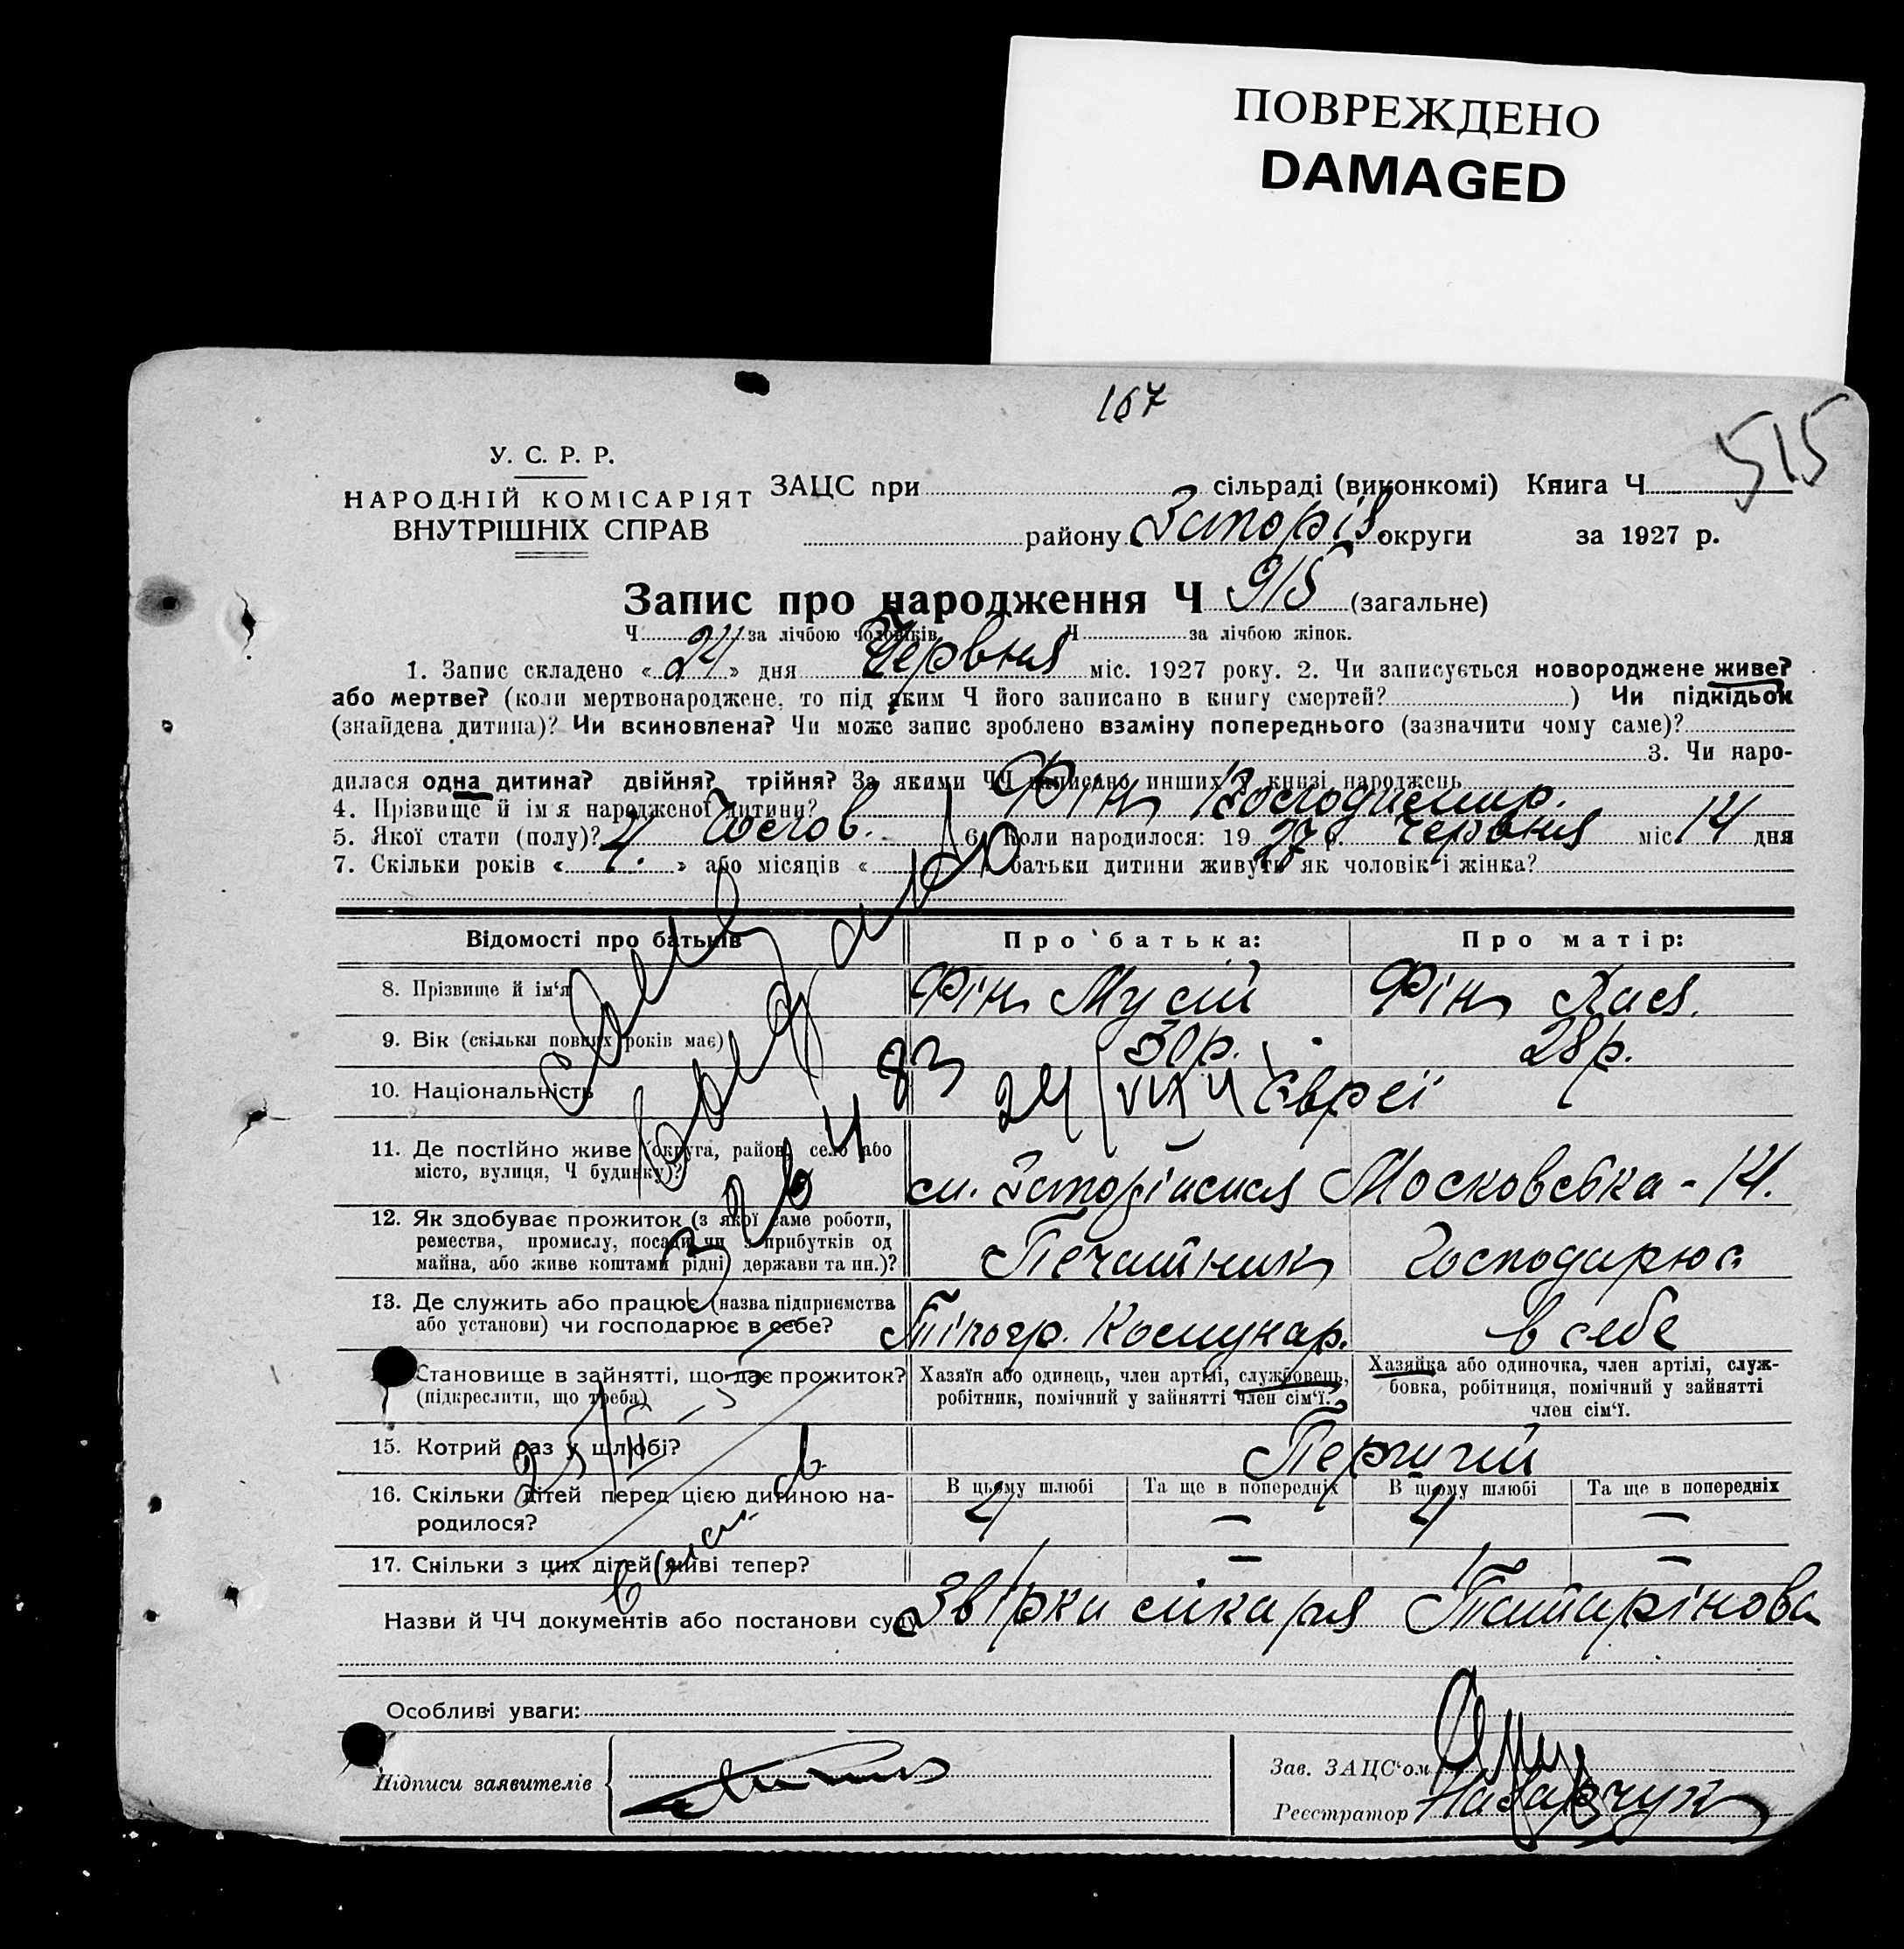 ПОВРЕЖДЕНО
DAMAGED
167
515
У. С. Р. Р.
НАРОДНІЙ КОМІСАРІЯТ
ВНУТРІШНІХ СПРАВ
ЗАЦС при сільраді (виконкомі) Книга Ч
району Запоріз. округи за 1927 р.
Запис про народження Ч 915 (загальне)
Ч за лічбою чоловіків Ч за лічбою жінок.
1. Запис складено « 24 » дня Червня міс. 1927 року. 2. Чи записується новороджене живе?
або мертве? (коли мертвонароджене, то під яким Ч його записано в книгу смертей? ) Чи підкідьок
(знайдена дитина)? Чи всиновлена? Чи може запис зроблено взаміну попереднього (зазначити чому саме)?
3. Чи наро-
дилася одна дитина? двійня? трійня? За якими ЧЧ записано инших у книзі народжень
4. Прізвище й ім'я народженої дитини? Фін
5. Якої стати (полу)? Чолов. 6. Коли народилося: 19 27 р. Червня міс. 14 дня
7. Скільки років « 4. » або місяців « » батьки дитини живуть як чоловік і жінка?
Відомості про батьків
Про батька:
Про матір:
8. Прізвище й ім'я
Фін Мусій
Фін Хася.
9. Вік (скільки повних років має)
30р.
28р.
10. Національність
Євреї
11. Де постійно живе (округа, район, село або
місто, вулиця, Ч будинку)?
м. Запоріжжя Московська - 14.
12. Як здобуває прожиток (з якої саме роботи,
ремества, промислу, посади чи з прибутків од
майна, або живе коштами рідні, держави та ин.)?
Печатник
Господарює
13. Де служить або працює (назва підприємства
або установи) чи господарює в себе?
Тіпогр. Комунар.
в себе
Становище в зайнятті, що дає прожиток?
(підкреслити, що треба)
Хазяїн або одинець, член артілі, службовець,
робітник, помічний у зайнятті член сім'ї.
Хазяйка або одиночка, член артілі, служ-
бовка, робітниця, помічний у зайнятті
член сім'ї.
15. Котрий раз у шлюбі?
Перший
16. Скільки дітей перед цією дитиною на-
родилося?
В цьому шлюбі
Та ще в попередніх
В цьому шлюбі
Та ще в попередніх
2
—
2
—
17. Скільки з цих дітей живі тепер?
1 — 1 —
Назви й ЧЧ документів або постанови суду
Звірка лікаря Татарінова
Особливі уваги:
Підписи заявителів
Зав. ЗАЦС'ом
Реєстратор Назарчук